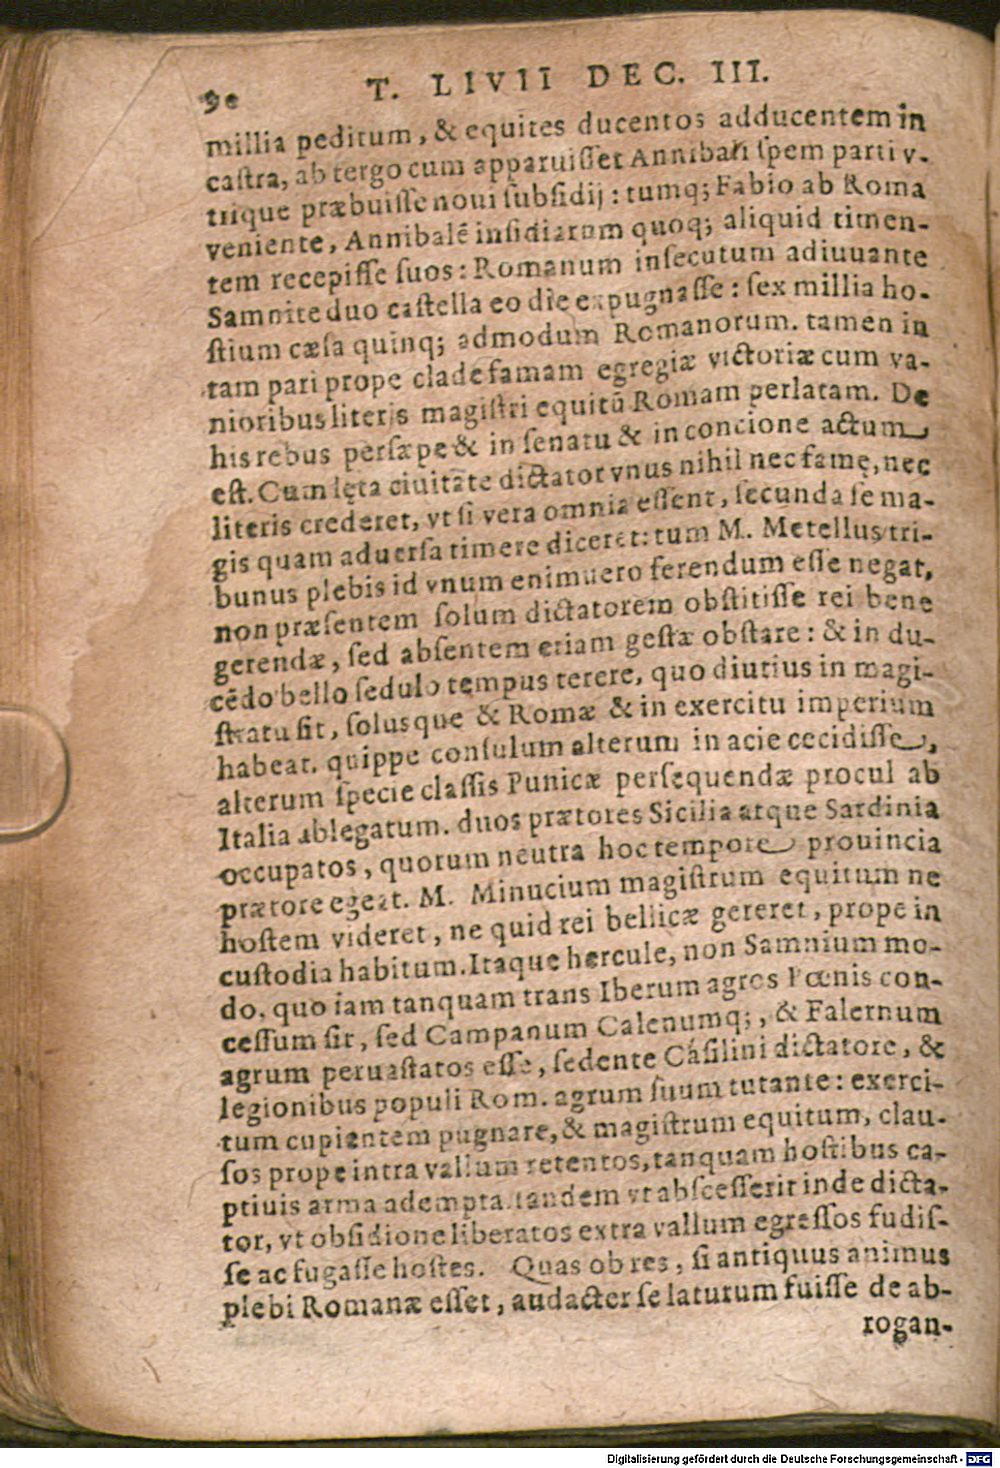 90
T. LIVII DEC. III.
millia peditum, & equites ducentos adducentem in
castra, ab tergo cum apparuisset Annibali spem parti v-
trique præbuisse noui subsidij: tumq; Fabio ab Roma
veniente, Annibalē insidiarum quoq; aliquid timen-
tem recepisse suos: Romanum insecutum adiuuante
Samnite duo castella eo die expugnasse: sex millia ho-
stium cæsa quinq; admodum Romanorum. tamen in
tam pari prope clade famam egregiæ victoriæ cum va-
nioribus literis magistri equitū Romam perlatam. De
his rebus persæpe & in senatu & in concione actum
est. Cum lęta ciuitate dictator vnus nihil nec famę, nec
literis crederet, vt si vera omnia essent, secunda se ma-
gis quam aduersa timere diceret: tum M. Metellus tri-
bunus plebis id vnum enimuero ferendum esse negat,
non præsentem solum dictatorem obstitisse rei bene
gerendæ, sed absentem etiam gestæ obstare: & in du-
cēdo bello sedulo tempus terere, quo diutius in magi-
stratu sit, solusque & Romæ & in exercitu imperium
habeat. quippe consulum alterum in acie cecidisse,
alterum specie classis Punicæ persequendæ procul ab
Italia ablegatum. duos prætores Sicilia atque Sardinia
occupatos, quorum neutra hoc tempore prouincia
prætore egeat. M. Minucium magistrum equitum ne
hostem videret, ne quid rei bellicæ gereret, prope in
custodia habitum. Itaque hercule, non Samnium mo-
do, quo iam tanquam trans Iberum agros Pœnis con-
cessum sit, sed Campanum Calenumq;, & Falernum
agrum peruastatos esse, sedente Casilini dictatore, &
legionibus populi Rom. agrum suum tutante: exerci-
tum cupientem pugnare, & magistrum equitum, clau-
sos prope intra vallum retentos, tanquam hostibus ca-
ptiuis arma adempta. tandem vt abscesserit inde dicta-
tor, vt obsidione liberatos extra vallum egressos fudis-
se ac fugasse hostes. Quas ob res, si antiquus animus
plebi Romanæ esset, audacter se laturum fuisse de ab-
rogan-
Digitalisierung gefördert durch die Deutsche Forschungsgemeinschaft - DFG